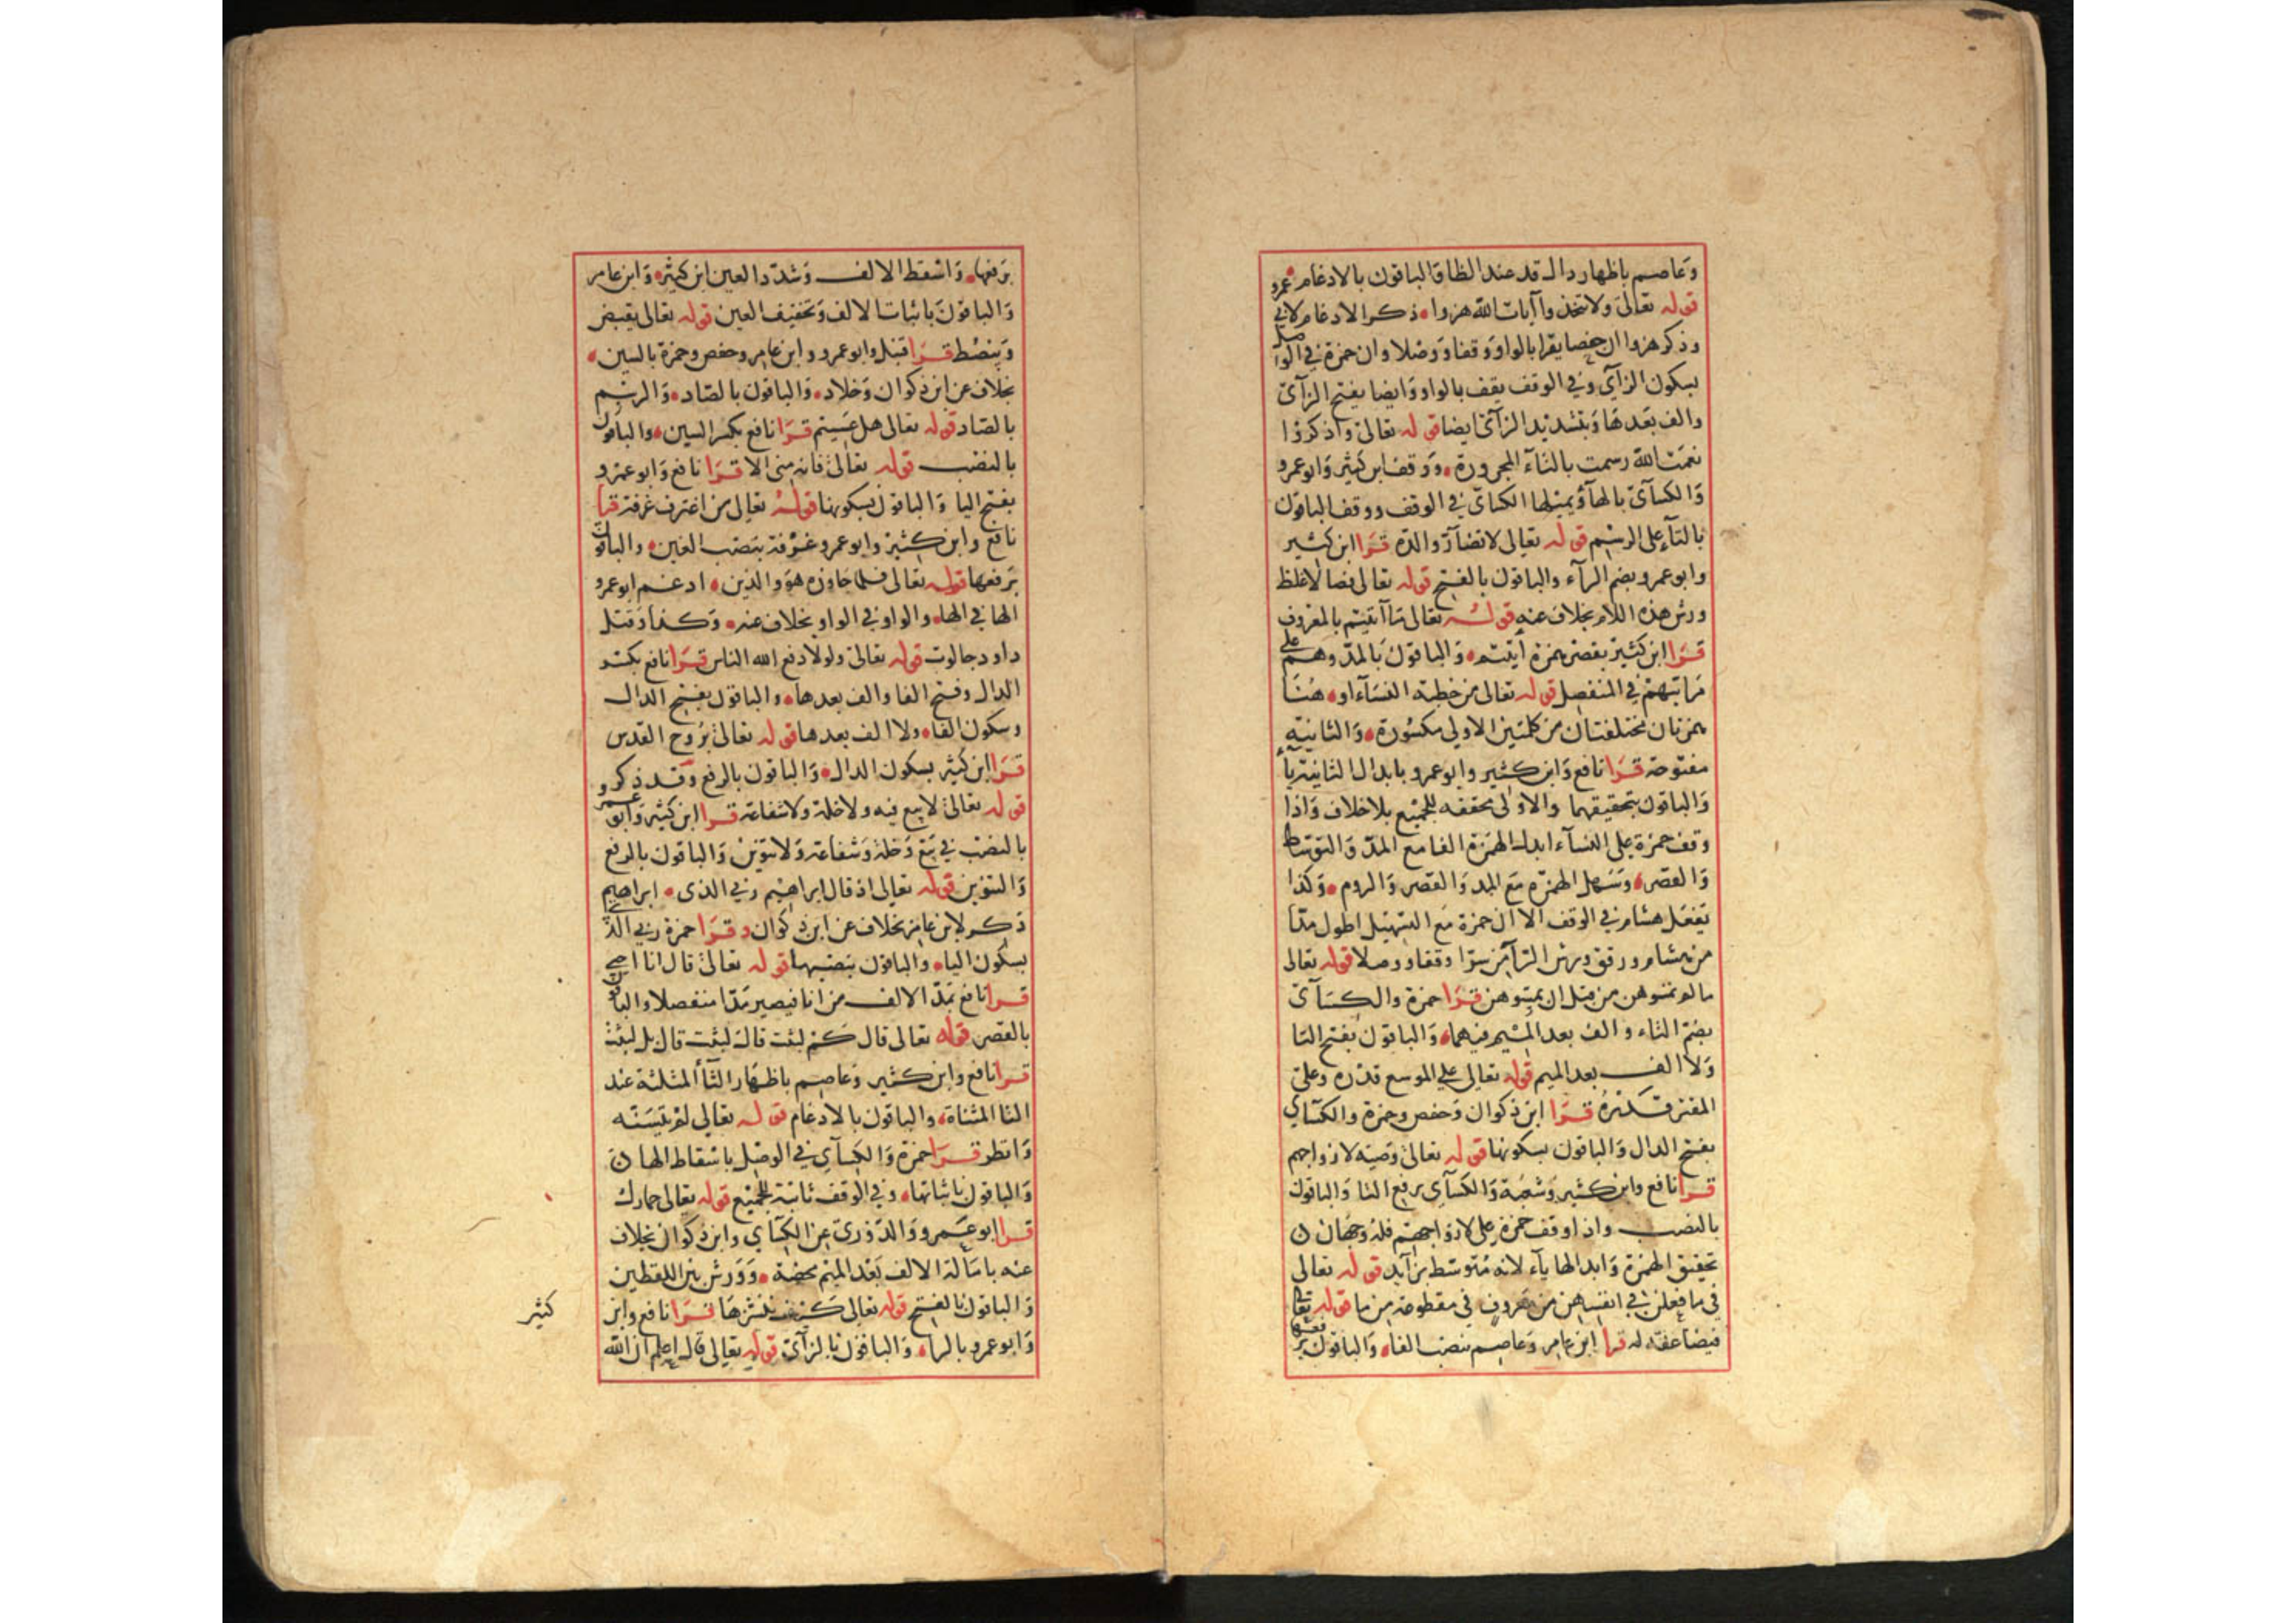 وعاصم باظهار دال قد عند الظا والباقون بالادغام
قوله تعالى ولا تتخذوا آيات الله هزوا ذكر الادغام لابي عمرو
وذكر هزوا ان حفصا يقرا بالواو وقفا ووصلا وان حمزة في الوصل
بسكون الزآي وفي الوقف يقف بالواو وايضا بفتح الزآي
والف بعدها وبتشديد الزآي ايضا قوله تعالى واذكروا
نعمت الله رسمت بالتآء المجرورة ووقف ابن كثير وابو عمرو
والكسآئ بالهآ ويميلها الكسائ في الوقف ووقف الباقون
بالتآء على الرسم قوله تعالى لا تضآر والدة قرا ابن كثير
وابو عمرو بضم الرآء والباقون بالفتح قوله تعالى فصالا غلظ
ورش هذه اللام بخلاف عنه قوله تعالى مآ آتيتم بالمعروف
قرا ابن كثير بقصر همزة أتيتم والباقون بالمد وهم على
مراتبهم في المنفصل قوله تعالى من خطبة النسآء او هنا
همزتان مختلفتان من كلمتين الاولى مكسورة والثانية
مفتوحة قرا نافع وابن كثير وابو عمرو بابدال الثانية يآء
والباقون بتحقيقهما والاولى محققه للجميع بلا خلاف واذا
وقف حمزة على النسآء ابدل الهمزة الفا مع المد والتوسط
والقصر وتسهل الهمزه مع المد والقصر والروم وكذا
يفعل هشام في الوقف الا ان حمزة مع التسهيل اطول مدا
من هشام ورقق ورش الرآ من سرا وقفا ووصلا قوله تعالى
ما لم تمسوهن من قبل ان تمسوهن قرا حمزة والكسآئ
بضم التاء والف بعد الميم فيهما والباقون بفتح التا
ولا الف بعد الميم قوله تعالى على الموسع قدره وعلى
المقتر قدره قرا ابن ذكوان وحفص وحمزة والكسآي
بفتح الدال والباقون بسكونها قوله تعالى وصية لازواجهم
قرا نافع وابن كثير وشعبة والكسآي برفع التا والباقون
بالنصب واذا وقف حمزة على لازواجهم فله وجهان
تحقيق الهمزة وابدالها يآء لانه متوسط بزآيد قوله تعالى
في ما فعلن في انفسهن من معروف في مقطوعة من ما قوله تعالى
فيضاعفه له قرا ابن عامر وعاصم بنصب الفاء والباقون برفعها
برفعها واسقط الالف وشدد العين ابن كثير وابن عامر
والباقون باثبات الالف وتخفيف العين قوله تعالى يقبض
ويبصط قرا قنبل وابو عمرو وابن عامر وحفص وحمزة بالسين
بخلاف عن ابن ذكوان وخلاد والباقون بالصاد والرسم
بالصاد قوله تعالى هل عسيتم قرا نافع بكسر السين والباقون
بالنصب قوله تعالى فانه مني الا قرا نافع وابو عمرو
بفتح اليا والباقون بسكونها قوله تعالى من اغترف غرفة قرا
نافع وابن كثير وابو عمرو غرفة بنصب الغين والباقون
برفعها قوله تعالى فلما جاوزه هو والذين ادغم ابو عمرو
الها في الها والواو في الواو بخلاف عنه وكذا وقتل
داود جالوت قوله تعالى ولولا دفع الله الناس قرا نافع بكسر
الدال وفتح الفا والف بعدها والباقون بفتح الدال
وسكون الفا ولا الف بعدها قوله تعالى بروح القدس
قرا ابن كثير بسكون الدال والباقون بالرفع وقد ذكر
قوله تعالى لا بيع فيه ولا خلة ولا شفاعة قرا ابن كثير وابو عمرو
بالنصب في بيع وخلة وشفاعة ولا تنوين والباقون بالرفع
والتنوين قوله تعالى اذ قال ابراهيم ربي الذى ابراهيم
ذكر لابن عامر بخلاف عن ابن ذكوان وقرا حمزة ربي الذي
بسكون اليا والباقون بنصبها قوله تعالى قال انا احي
قرا نافع بمد الالف من انا فيصير مدا منفصلا والباقون
بالقصر قوله تعالى قال كم لبثت قال لبثت قال بل لبثت
قرا نافع وابن كثير وعاصم باظهار الثآ المثلثة عند
التا المثناة والباقون بالادغام قوله تعالى لم يتسنه
وانظر قرا حمزة والكسآي في الوصل باسقاط الها
والباقون باثباتها وفي الوقف ثابتة للجميع قوله تعالى حمارك
قرا ابو عمرو والدورى عن الكسآي وابن ذكوان بخلاف
عنه بامالة الالف بعد الميم محضة وورش بين اللفظين
والباقون بالفتح قوله تعالى كيف ننشزها قرا نافع وابن
كثير
وابو عمرو بالراء والباقون بالزآي قوله تعالى قال اعلم ان الله